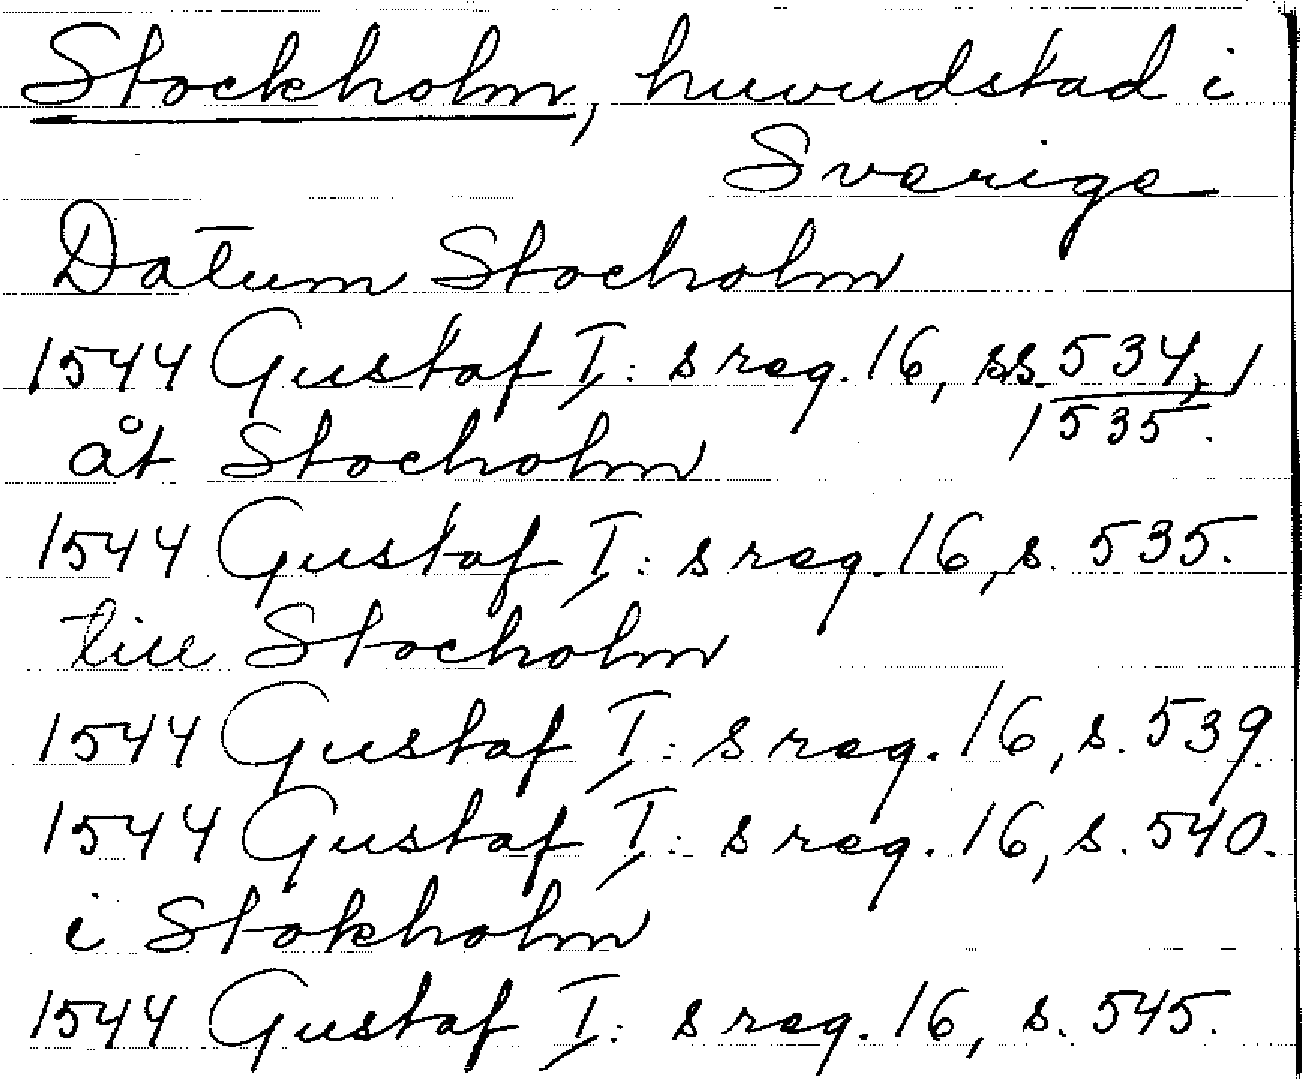 Stockholm, huvudstad i
Sverige
Datum Stocholm
1544 Gustaf I: s reg. 16, ss. 534,
535.
åt Stocholm
1544 Gustaf I: s reg. 16, s. 535.
till Stocholm
1544 Gustaf I: s reg. 16, s. 539.
1544 Gustaf I: s reg. 16, s. 540.
i Stokholm
1544 Gustaf I: s reg. 16, s. 545.